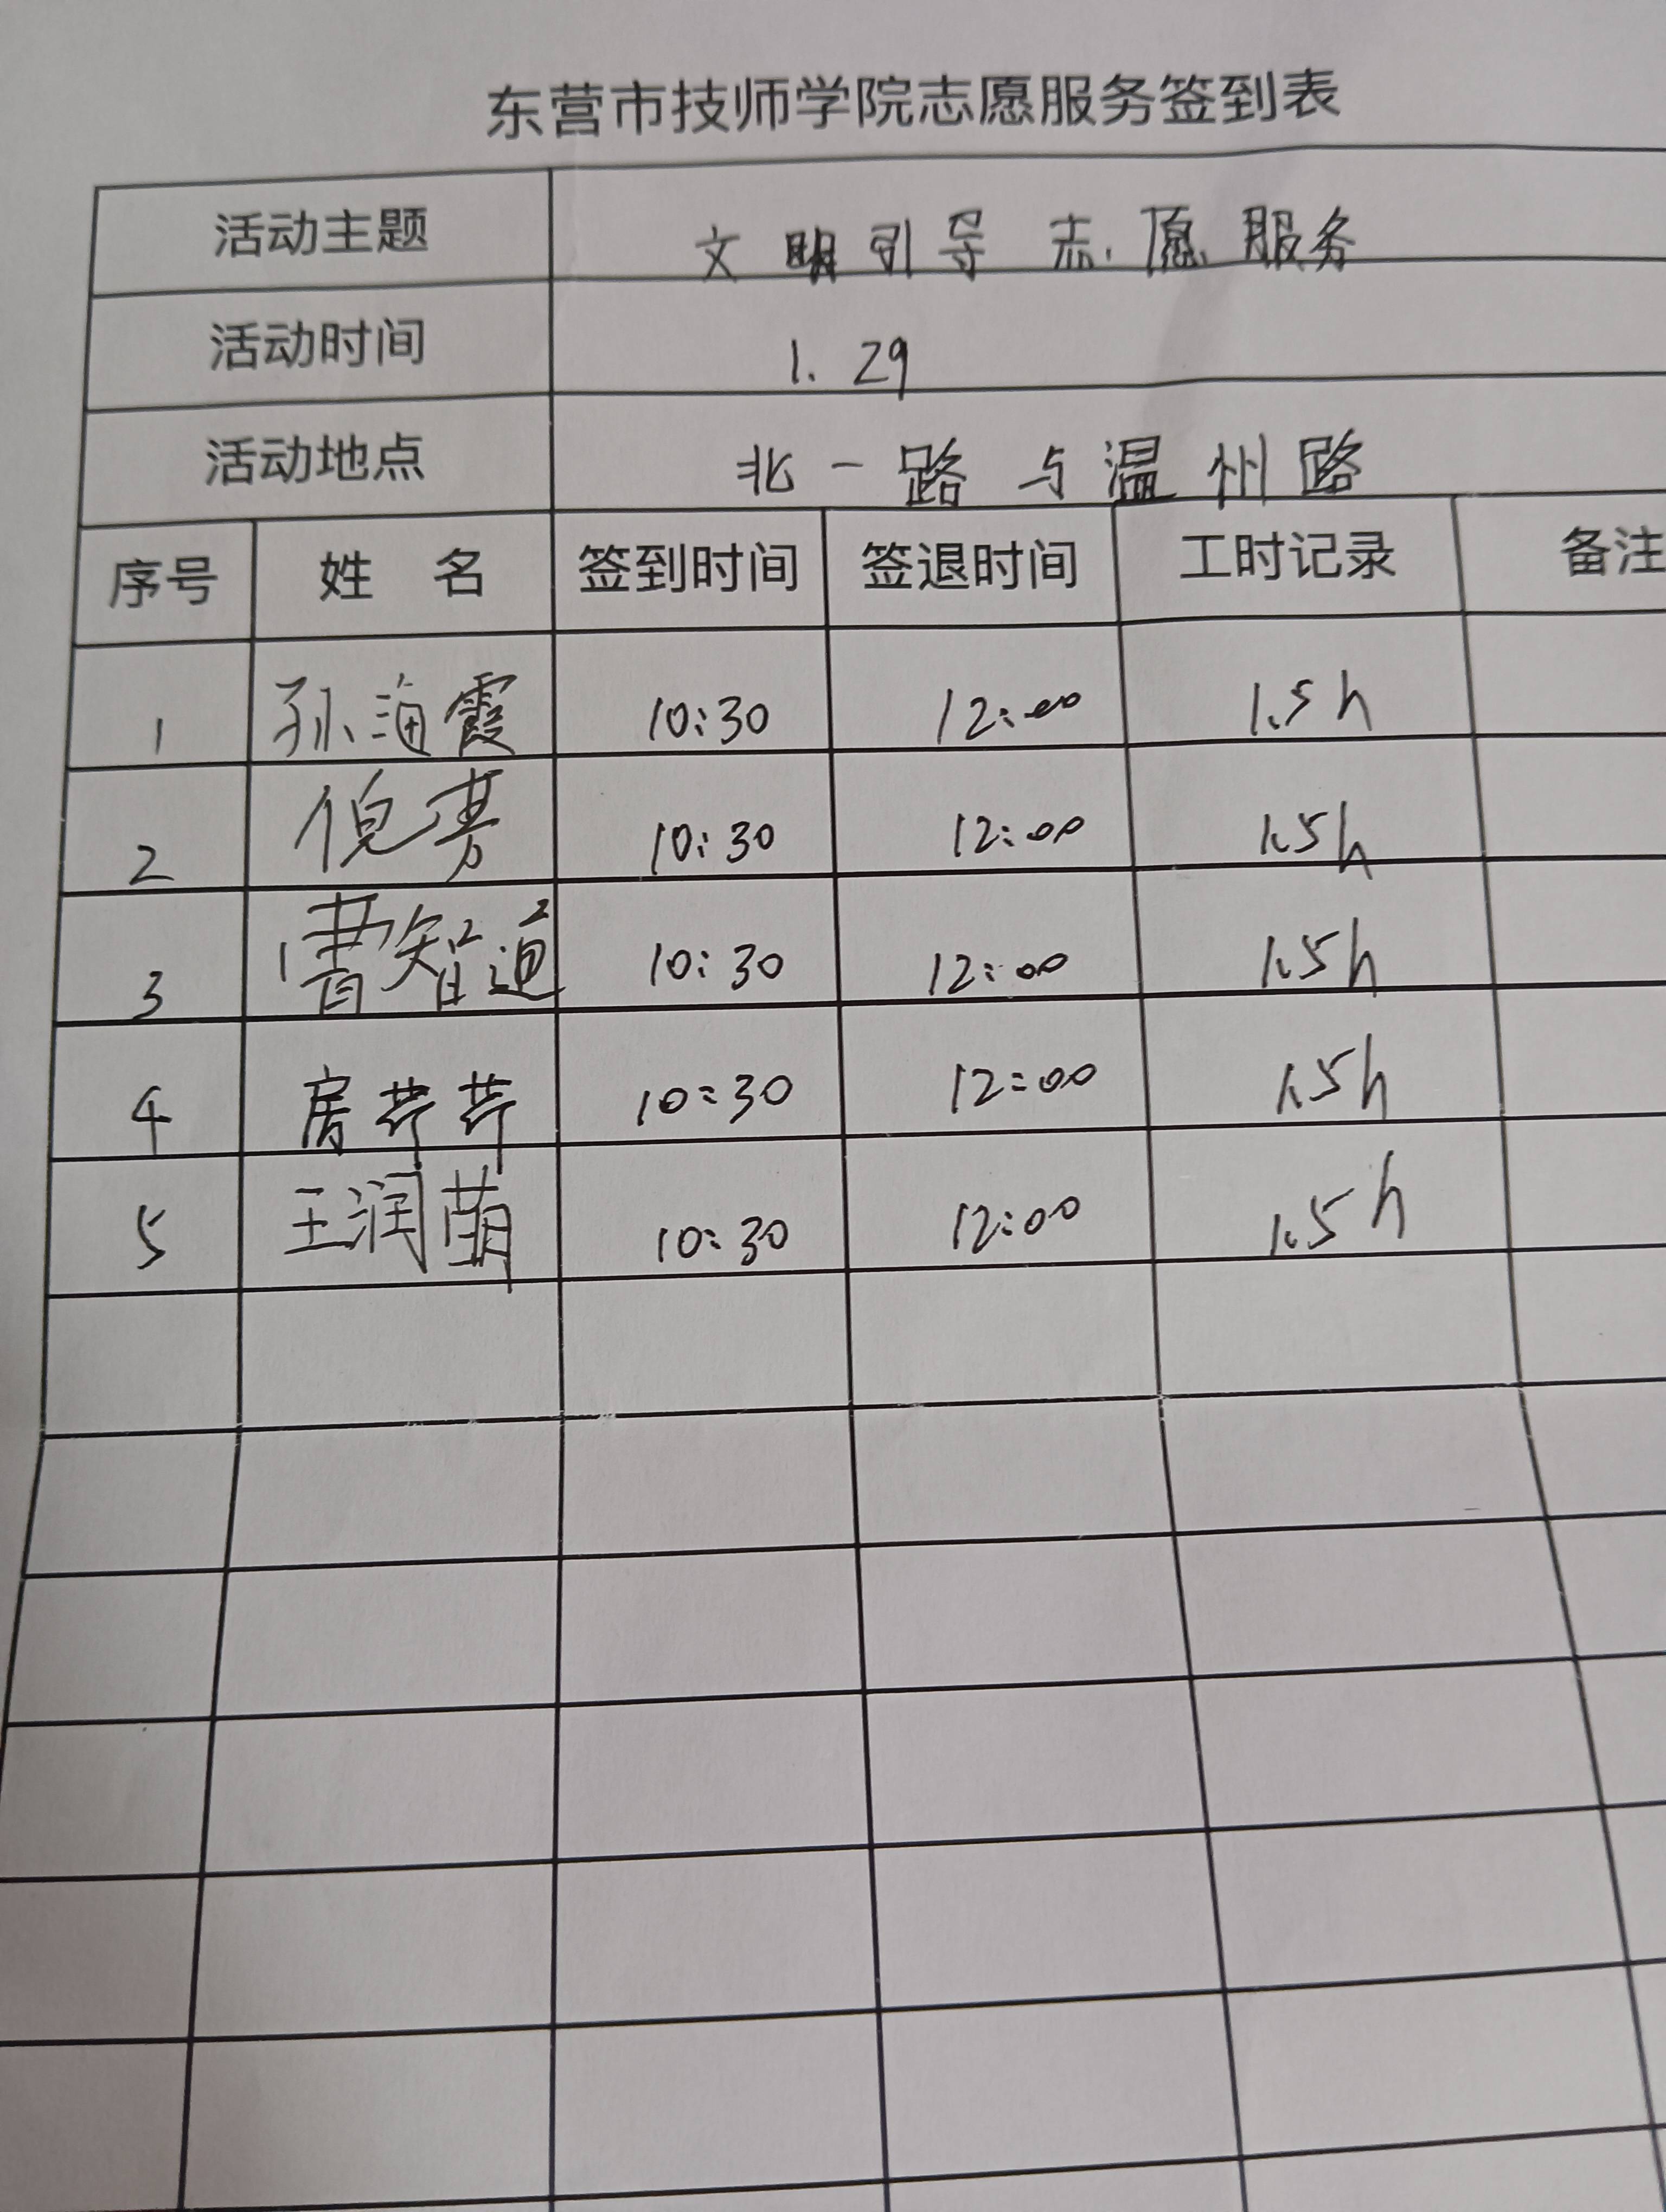 东营市技师学院志愿服务签到表
活动主题 文明引导志愿服务
活动时间 1.29
活动地点 北一路与温州路
序号 姓名 签到时间 签退时间 工时记录 备注
1 孙海霞 10:30 12:00 1.5h
2 倪 10:30 12:00 1.5h
3 曹智通 10:30 12:00 1.5h
4 房芹芹 10:30 12:00 1.5h
5 王润萌 10:30 12:00 1.5h